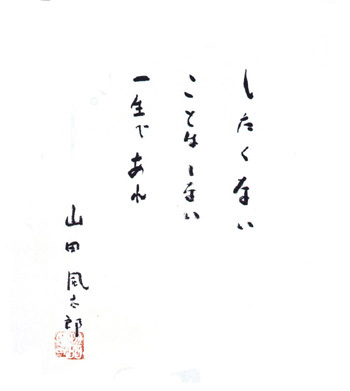 したくない
ことはしない
一生であれ
山田風太郎